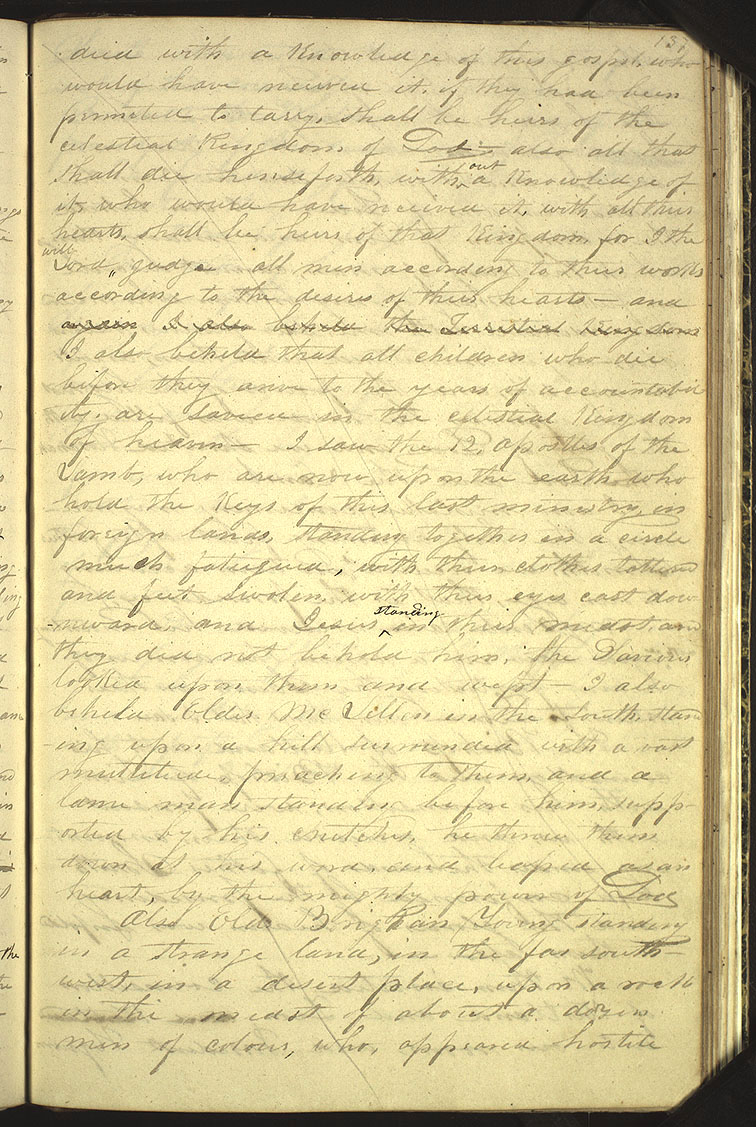 137
died with a Knowledge of this gospel, who
would have received it, if they had been
permited to tarry, shall be heirs of the
celestial Kingdom of God— also all that
Shall die henseforth, with^out a Knowledge of
it, who would have received it, with all their
hearts, shall be heirs of that Kingdom, for I the
Lord ^will judge all men according to their works
according to the desires of their hearts— and
again I also beheld the Terrestrial Kingdom
I also beheld that all children who die
before they arive to the years of accountabil
ity, are saved in the celestial Kingdom
of heaven— I saw the 12, apostles of the
Lamb, who are now upon the earth who
hold the Keys of this last ministry, in
foreign lands, standing together in a circle
much fatiegued, with their clothes tattered
and feet swolen, with their eyes cast dow
-nward, and Jesus ^standing in their midst, and
they did not behold him, the Saviour
looked upon them and wept— I also
beheld Elder McLellen in the south, stand
-ing upon a hill surrounded with a vast
multitude, preaching to them, and a
lame man standing before him, supp-
orted by his crutches, he threw them
down at his word, and leaped as an
heart, by the mighty power of God
Also Eldr Brigham Young standing
in a strange land, in the far south-
west, in a desert place, upon a rock
in the midst of about a dozen
men of colour, who, appeared hostile
the